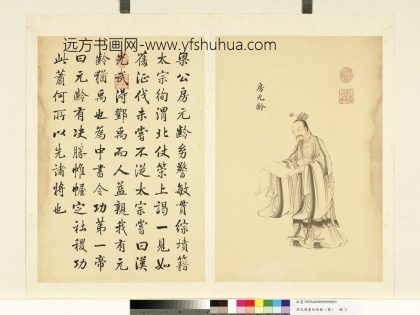 远方书画网-www.yfshuhua.com
房元齡
梁公房元齡幼警敏貫綜墳籍
太宗徇渭北仗策上謁一見如
舊征伐未嘗不從太宗嘗曰漢
光武得鄧禹而人益親我有元
齡猶禹也為中書令功第一帝
曰元齡有決勝帷幄定社稷功
此蕭何所以先諸將也